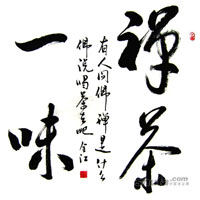 禪茶
一味
有人问佛禅是什么
佛说喝茶去吧